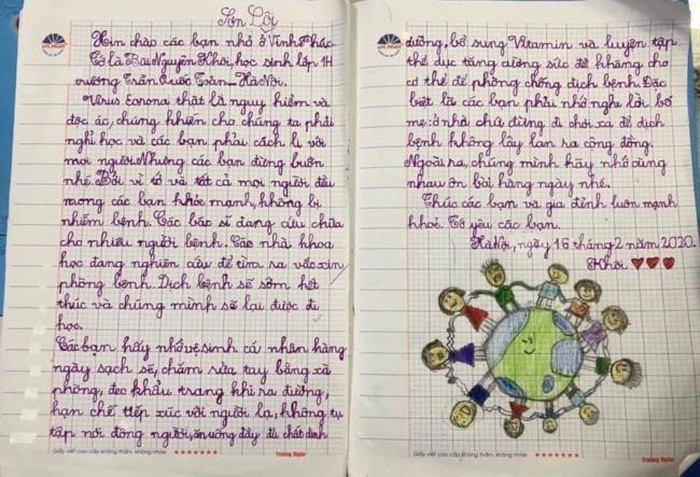 Sơn Lôi
Xin chào các bạn nhỏ ở Vĩnh Phúc
Tớ là Bùi Nguyên Khôi, học sinh lớp 1H
trường Trần Quốc Toản - Hà Nội.
Virus Corona thật là nguy hiểm và
độc ác, chúng khiến cho chúng ta phải
nghỉ học và các bạn phải cách li với
mọi người. Nhưng các bạn đừng buồn
nhé. Bởi vì tớ và tất cả mọi người đều
mong các bạn khỏe mạnh, không bị
nhiễm bệnh. Các bác sĩ đang cứu chữa
cho nhiều người bệnh. Các nhà khoa
học đang nghiên cứu để tìm ra vắc xin
phòng bệnh. Dịch bệnh sẽ sớm kết
thúc và chúng mình sẽ lại được đi
học.
Các bạn hãy nhớ vệ sinh cá nhân hàng
ngày sạch sẽ, chăm rửa tay bằng xà
phòng, đeo khẩu trang khi ra đường,
hạn chế tiếp xúc với người lạ, không tụ
tập nơi đông người, ăn uống đầy đủ chất dinh
Giấy viết cao cấp không thấm, không nhòe
dưỡng, bổ sung Vitamin và luyện tập
thể dục tăng cường sức đề kháng cho
cơ thể để phòng chống dịch bệnh. Đặc
biệt là các bạn phải nhớ nghe lời bố
mẹ: ở nhà chứ đừng đi chơi xa để dịch
bệnh không lây lan ra cộng đồng.
Ngoài ra, chúng mình hãy nhớ cùng
nhau ôn bài hàng ngày nhé.
Chúc các bạn và gia đình luôn mạnh
khoẻ. Tớ yêu các bạn.
Hà Nội, ngày 16 tháng 2 năm 2020.
Khôi
Giấy viết cao cấp không thấm, không nhòe